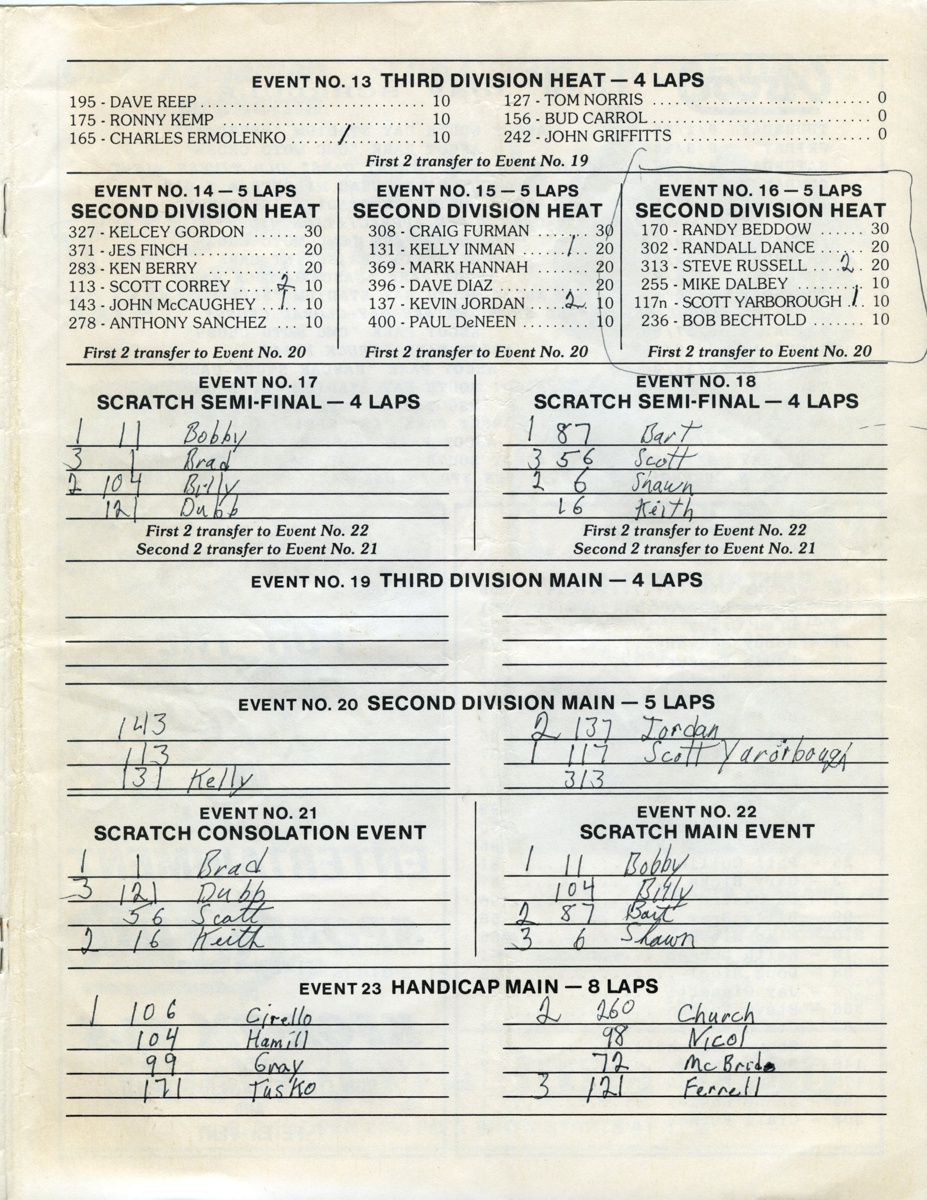 EVENT NO. 13 THIRD DIVISION HEAT — 4 LAPS
195 - DAVE REEP 10
175 - RONNY KEMP 10
165 - CHARLES ERMOLENKO 1 10
127 - TOM NORRIS 0
156 - BUD CARROL 0
242 - JOHN GRIFFITTS 0
First 2 transfer to Event No. 19
EVENT NO. 14 — 5 LAPS
SECOND DIVISION HEAT
327 - KELCEY GORDON 30
371 - JES FINCH 20
283 - KEN BERRY 20
113 - SCOTT CORREY 2 10
143 - JOHN McCAUGHEY 1 10
278 - ANTHONY SANCHEZ 10
First 2 transfer to Event No. 20
EVENT NO. 15 — 5 LAPS
SECOND DIVISION HEAT
308 - CRAIG FURMAN 30
131 - KELLY INMAN 1 20
369 - MARK HANNAH 20
396 - DAVE DIAZ 20
137 - KEVIN JORDAN 2 10
400 - PAUL DeNEEN 10
First 2 transfer to Event No. 20
EVENT NO. 16 — 5 LAPS
SECOND DIVISION HEAT
170 - RANDY BEDDOW 30
302 - RANDALL DANCE 20
313 - STEVE RUSSELL 2 20
255 - MIKE DALBEY 10
117n - SCOTT YARBOROUGH 1 10
236 - BOB BECHTOLD 10
First 2 transfer to Event No. 20
EVENT NO. 17
SCRATCH SEMI-FINAL — 4 LAPS
1 11 Bobby
3 1 Brad
2 104 Billy
121 Dubb
First 2 transfer to Event No. 22
Second 2 transfer to Event No. 21
EVENT NO. 18
SCRATCH SEMI-FINAL — 4 LAPS
1 87 Bart
3 56 Scott
2 6 Shawn
16 Keith
First 2 transfer to Event No. 22
Second 2 transfer to Event No. 21
EVENT NO. 19 THIRD DIVISION MAIN — 4 LAPS
EVENT NO. 20 SECOND DIVISION MAIN — 5 LAPS
143
113
131 Kelly
2 137 Jordan
1 117 Scott Yarorbough
313
EVENT NO. 21
SCRATCH CONSOLATION EVENT
1 1 Brad
3 121 Dubb
56 Scott
2 16 Keith
EVENT NO. 22
SCRATCH MAIN EVENT
1 11 Bobby
104 Billy
2 87 Bart
3 6 Shawn
EVENT 23 HANDICAP MAIN — 8 LAPS
1 106 Cirello
104 Hamill
99 Gray
171 Tusko
2 260 Church
98 Nicol
72 McBride
3 121 Ferrell